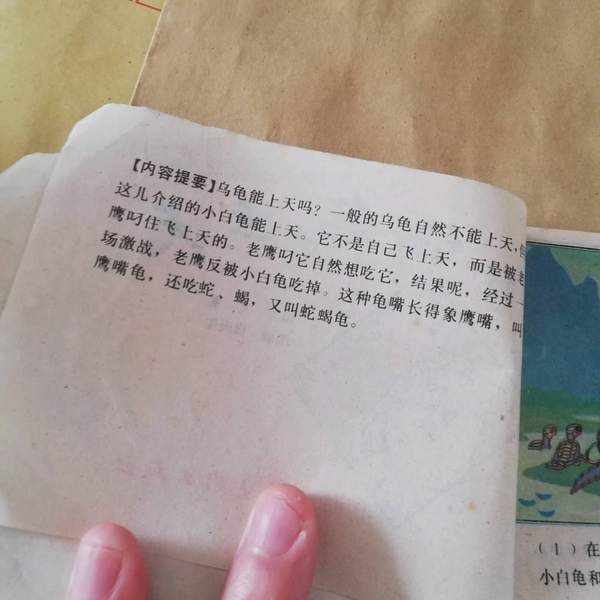 【内容提要】乌龟能上天吗？一般的乌龟自然不能上天，但
这儿介绍的小白龟能上天。它不是自己飞上天，而是被老
鹰叼住飞上天的。老鹰叼它自然想吃它，结果呢，经过一
场激战，老鹰反被小白龟吃掉。这种龟嘴长得象鹰嘴，叫
鹰嘴龟，还吃蛇、蝎，又叫蛇蝎龟。
（1）在
小白龟和